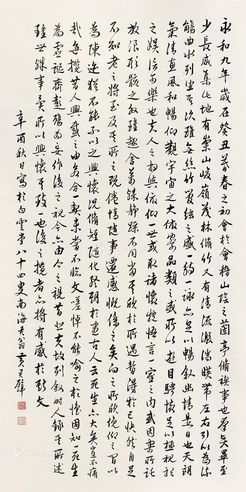 永和九年歲在癸丑暮春之初會於會稽山陰之蘭亭脩禊事也羣賢畢至
少長咸集此地有崇山峻嶺茂林脩竹又有清流激湍暎帶左右引以為流
觴曲水列坐其次雖無絲竹管絃之盛一觴一詠亦足以暢敘幽情是日也天朗
氣清惠風和暢仰觀宇宙之大俯察品類之盛所以遊目騁懷足以極視聽
之娛信可樂也夫人之相與俯仰一世或取諸懷抱悟言一室之內或因寄所託
放浪形骸之外雖趣舍萬殊靜躁不同當其欣於所遇暫得於己快然自足
不知老之將至及其所之既倦情隨事遷感慨係之矣向之所欣俛仰之間以
為陳迹猶不能不以之興懷況脩短隨化終期於盡古人云死生亦大矣豈不痛
哉每攬昔人興感之由若合一契未嘗不臨文嗟悼不能喻之於懷固知一死生
為虛誕齊彭殤為妄作後之視今亦由今之視昔悲夫故列敘時人錄其所述
雖世殊事異所以興懷其致一也後之攬者亦將有感於斯文
辛酉秋日寫於白雲堂八十四叟南海君翁黃君璧